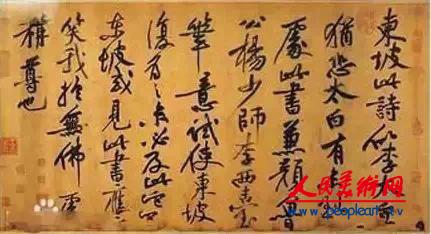 東坡此詩似李太白
猶恐太白有未到
處此書兼顏魯
公楊少師李西臺
筆意試使東坡
復為之未必及此它日
東坡或見此書應
笑我於無佛處
稱尊也
人民美术网
www.peopleart.tv